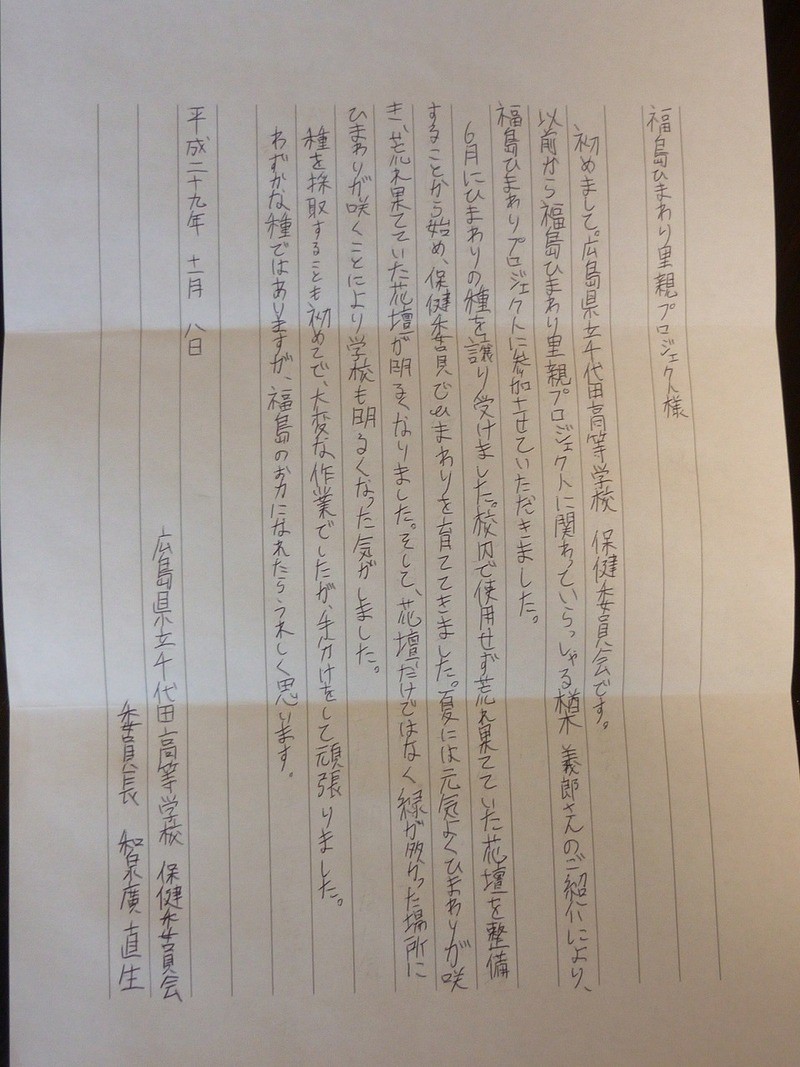 福島ひまわり里親プロジェクト様
初めまして。広島県立千代田高等学校　保健委員会です。
以前から福島ひまわり里親プロジェクトに関わっていらっしゃる楢木　義郎さんのご紹介により、
福島ひまわりプロジェクトに参加させていただきました。
６月にひまわりの種を譲り受けました。校内で使用せず荒れ果てていた花壇を整備
することから始め、保健委員でひまわりを育ててきました。夏には元気よくひまわりが咲
き、荒れ果てていた花壇が明るくなりました。そして、花壇だけではなく緑が多かった場所に
ひまわりが咲くことにより学校も明るくなった気がしました。
種を採取することも初めてで、大変な作業でしたが、手分けをして頑張りました。
わずかな種ではありますが、福島のお力になれたらうれしく思います。
平成二十九年　十一月　八日
広島県立千代田高等学校　保健委員会
委員長　智泉廣直生